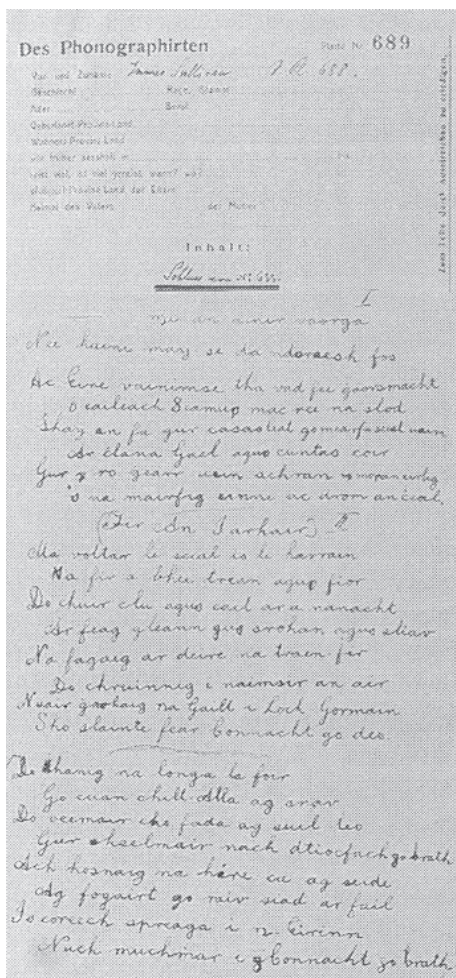 Des Phonographirten Platte Nr. 689
Vor und Zuname James Sullivan P. K. 688.
Geschlecht Race, Stamm
Alter Beruf
Geburtsort Provinz Land
Wohnort Provinz Land
wo früher sesshaft
der Mutter
Zum Teile durch Ausstreichen zu erledigen.
Inhalt:
Schluss von Nr 688.
I
an ainir vaorga
Nee haeni may se da ndoraesh fos
Ac Eire vainimse tha vad fee gaorsmacht
O caileach Seamup mac ree na slod
Shay an fa gur casastal gomearfa suil uain
Ar clana Gael agus cuntas coir
Gur ro gearr uein achran is moran
's na mairfig einne ac drom an ceal.
(Fir An Iarhair) II
Ma voltar le sceal is le harrain
Na fir a bhee trean agup fior
Do chuir clu agus cail ar a nanacht
Ar feag gleann gus srohan agus sliav
Na fagaig ar deire na traen fir
Do chruinnig i naimsir an air
Nuair gavhaig na Gaill i Loch Gormain
Sho slaunte fear Connacht go deo.
Do thanig na longa la foir
Go cuan chill Alla ag snav
Do veemair cho fada ag suil leo
Gur sheelmair nach dtiocfach go brath
Ach hosnaig na hére ca ag seide
Ag fogairt go raiv siad ar fail
Io coreech spreaga i n Eirinn
Nach muchmar i g Connacht go brath